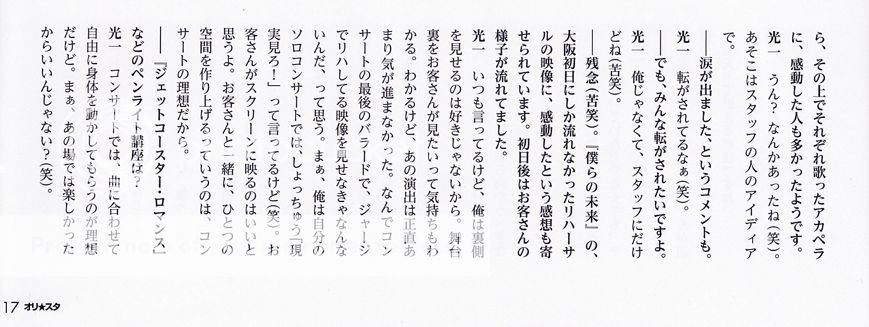 ら、その上でそれぞれ歌ったアカペラ
に、感動した人も多かったようです。
光一　うん? なんかあったね(笑)。
あそこはスタッフの人のアイディア
で。
──涙が出ました、というコメントも。
光一　転がされてるなぁ(笑)。
──でも、みんな転がされたいですよ。
光一　俺じゃなくて、スタッフにだけ
どね(苦笑)。
──残念(苦笑)。『僕らの未来』の、
大阪初日にしか流れなかったリハーサ
ルの映像に、感動したという感想も寄
せられています。初日後はお客さんの
様子が流れてました。
光一　いつも言ってるけど、俺は裏側
を見せるのは好きじゃないから。舞台
裏をお客さんが見たいって気持ちもわ
かる。わかるけど、あの演出は正直あ
まり気が進まなかった。なんでコン
サートの最後のバラードで、ジャージ
でリハしてる映像を見せなきゃなんな
いんだ、って思う。まぁ、俺は自分の
ソロコンサートでは、しょっちゅう「現
実見ろ!」って言ってるけど(笑)。お
客さんがスクリーンに映るのはいいと
思うよ。お客さんと一緒に、ひとつの
空間を作り上げるっていうのは、コン
サートの理想だから。
──『ジェットコースター・ロマンス』
などのペンライト講座は?
光一　コンサートでは、曲に合わせて
自由に身体を動かしてもらうのが理想
だけど。まぁ、あの場では楽しかった
からいいんじゃない?(笑)。
17 オリ★スタ